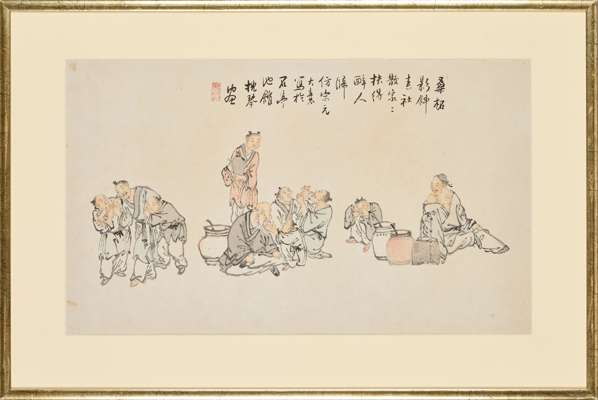 桑柘
影斜
春社
散家〻
扶得
醉人
歸
仿宋元
大意
寫於
石亭
池館